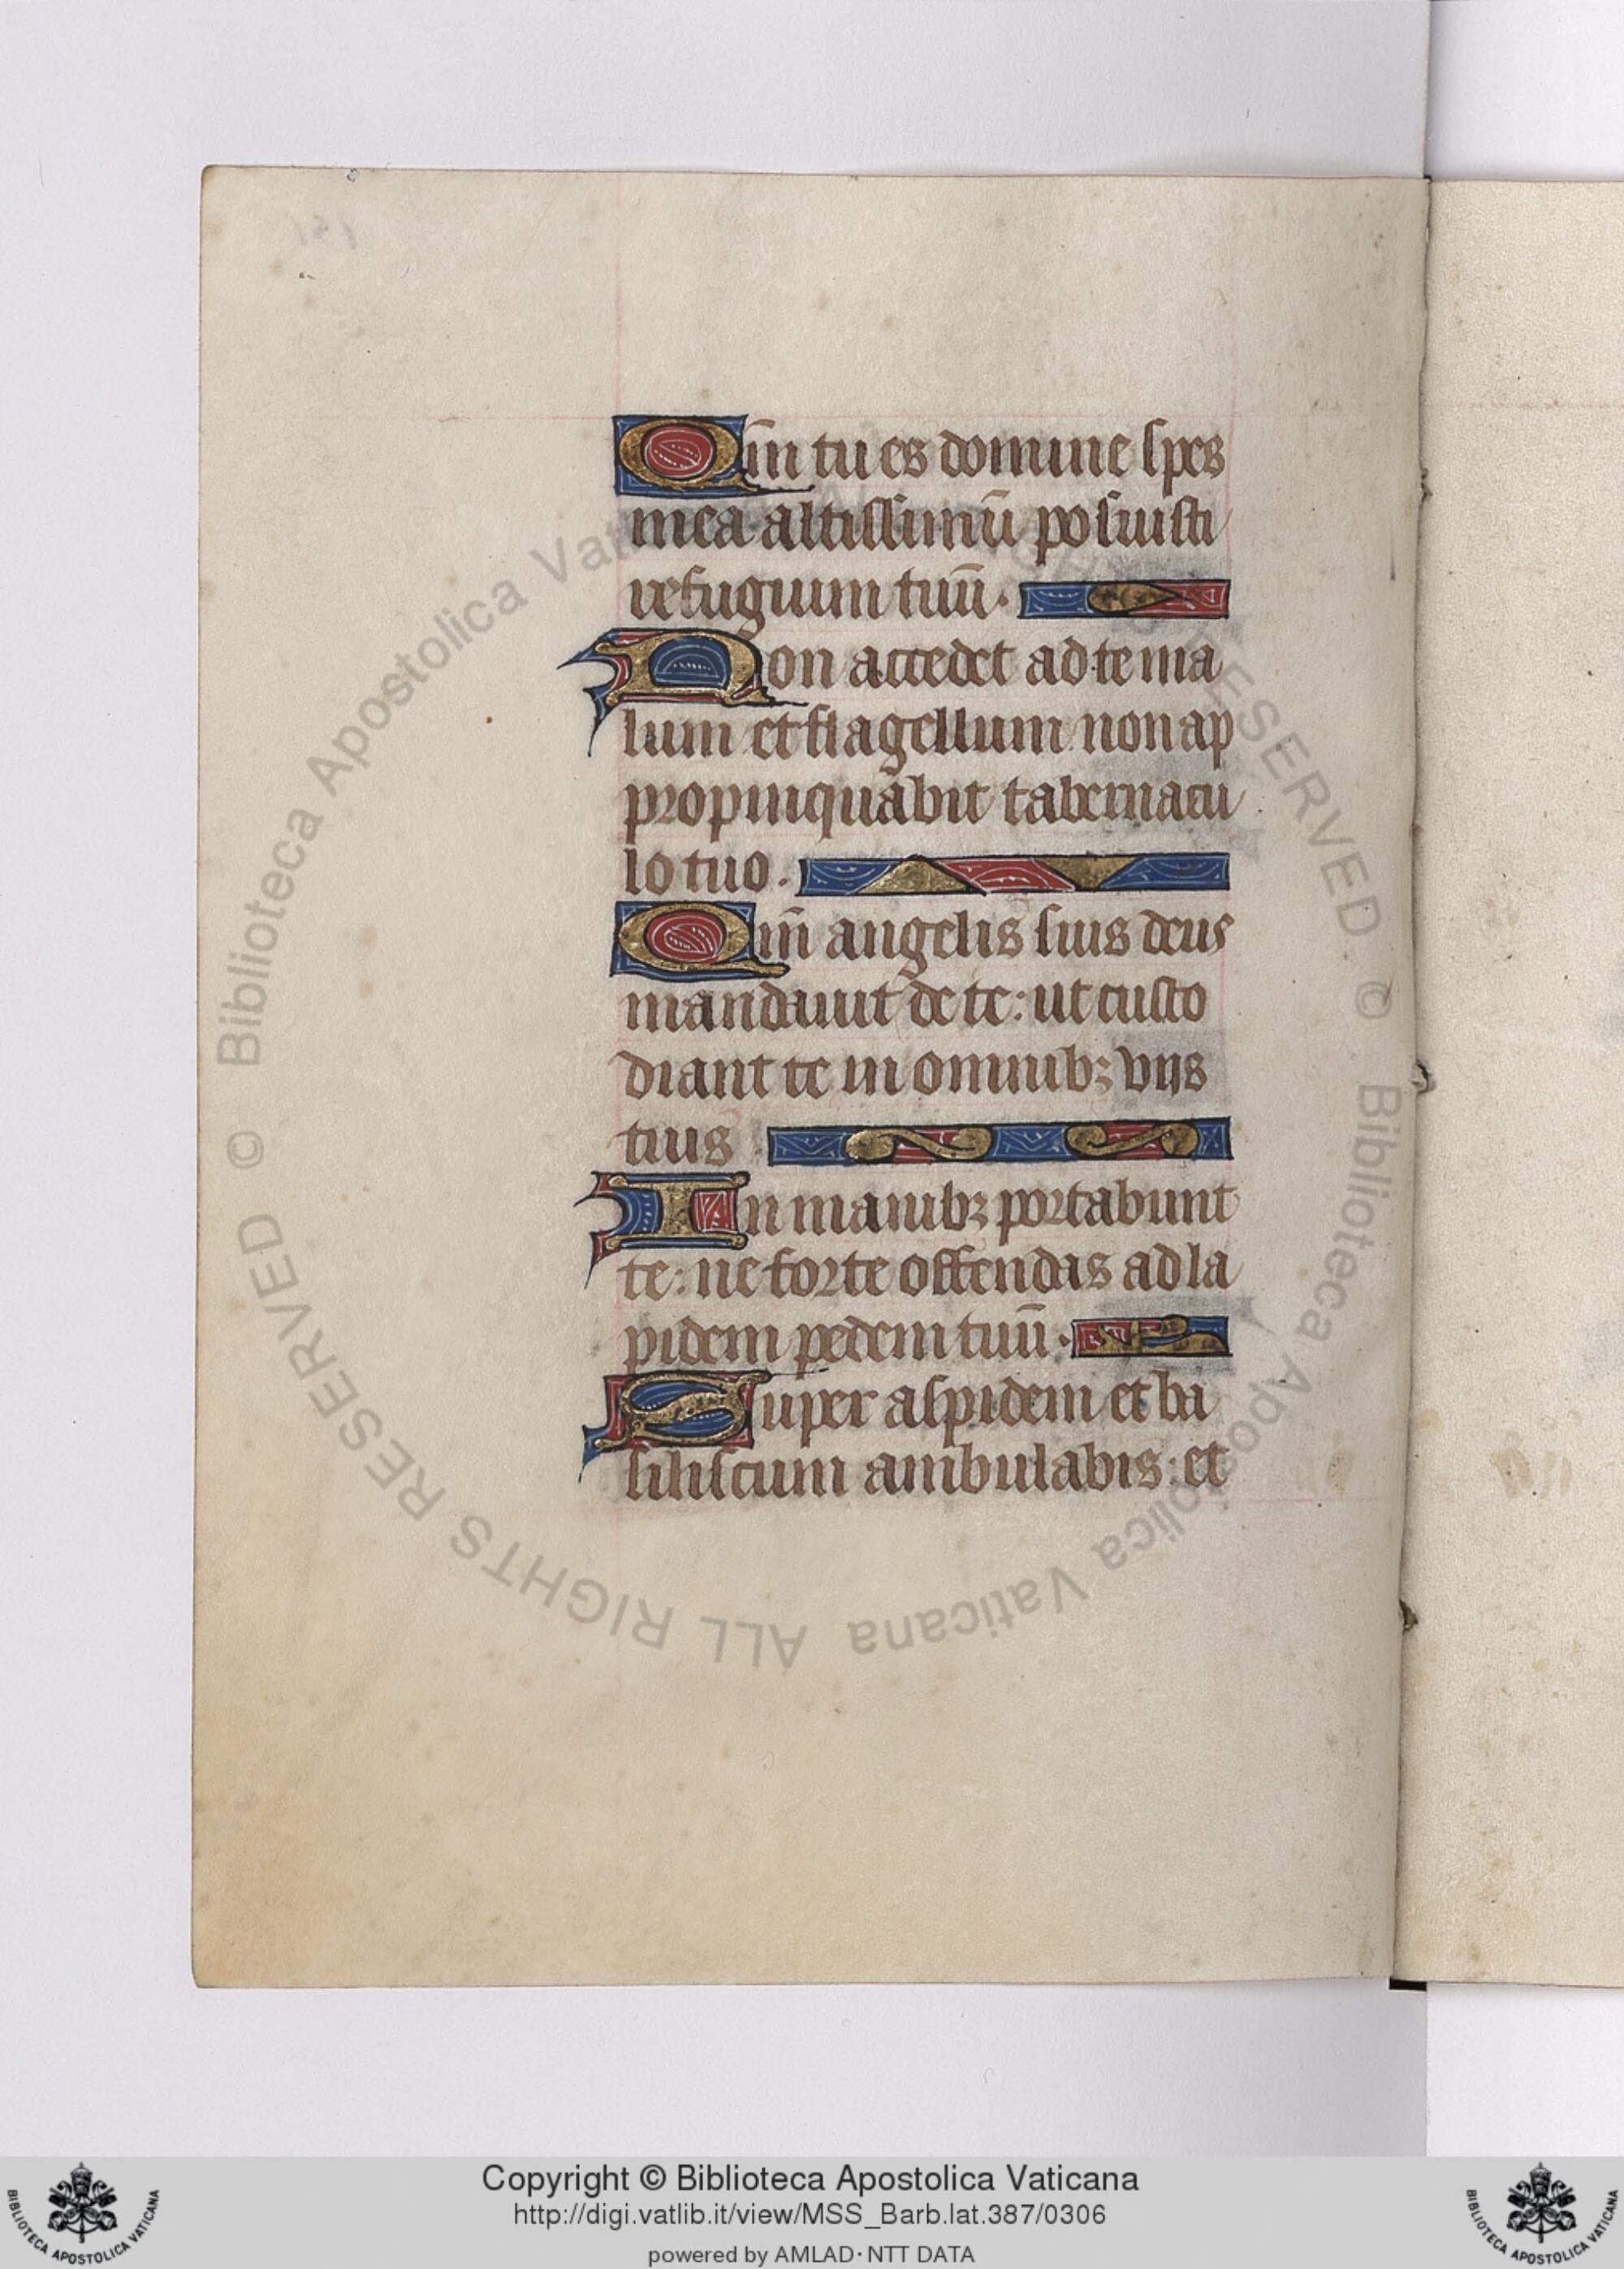 Qm̄ tu es domine spes
mea altissimū posuisti
refugium tuū.
Non accedet ad te ma
lum et flagellum non ap
propinquabit tabernacu
lo tuo.
Qm̄ angelis suis deus
mandauit de te: ut custo
diant te in omnibꝫ viis
tuis
In manibꝫ portabunt
te: ne forte offendas ad la
pidem pedem tuū.
Super aspidem et ba
siliscum ambulabis: et
© Biblioteca Apostolica Vaticana ALL RIGHTS RESERVED
© Biblioteca Apostolica Vaticana ALL RIGHTS RESERVED
Copyright © Biblioteca Apostolica Vaticana
http://digi.vatlib.it/view/MSS_Barb.lat.387/0306
powered by AMLAD·NTT DATA
BIBLIOTECA APOSTOLICA VATICANA
BIBLIOTECA APOSTOLICA VATICANA